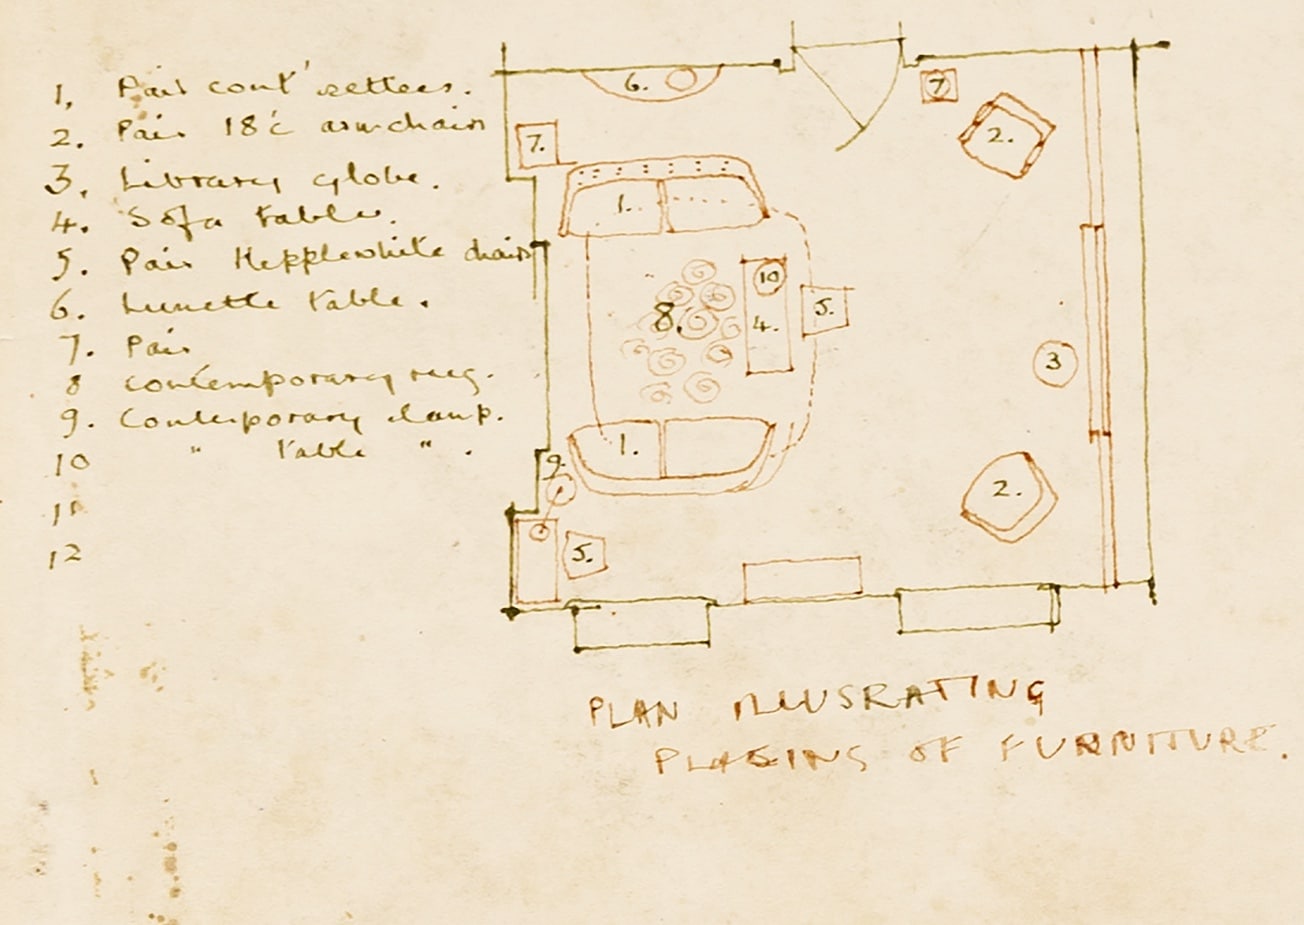 1, Pair cont' settees.
2. Pair 18'c armchairs
3. Library globe.
4. Sofa table.
5. Pair Hepplewhite chairs
6. Lunette table.
7. Pair
8 contemporary rug.
9. Contemporary lamp.
10 " table " .
11
12
6.
7
7.
2.
1.
10
8.
4.
5.
3
1.
9.
2.
5.
PLAN ILLUSRATING
PLASINS OF FURNITURE.